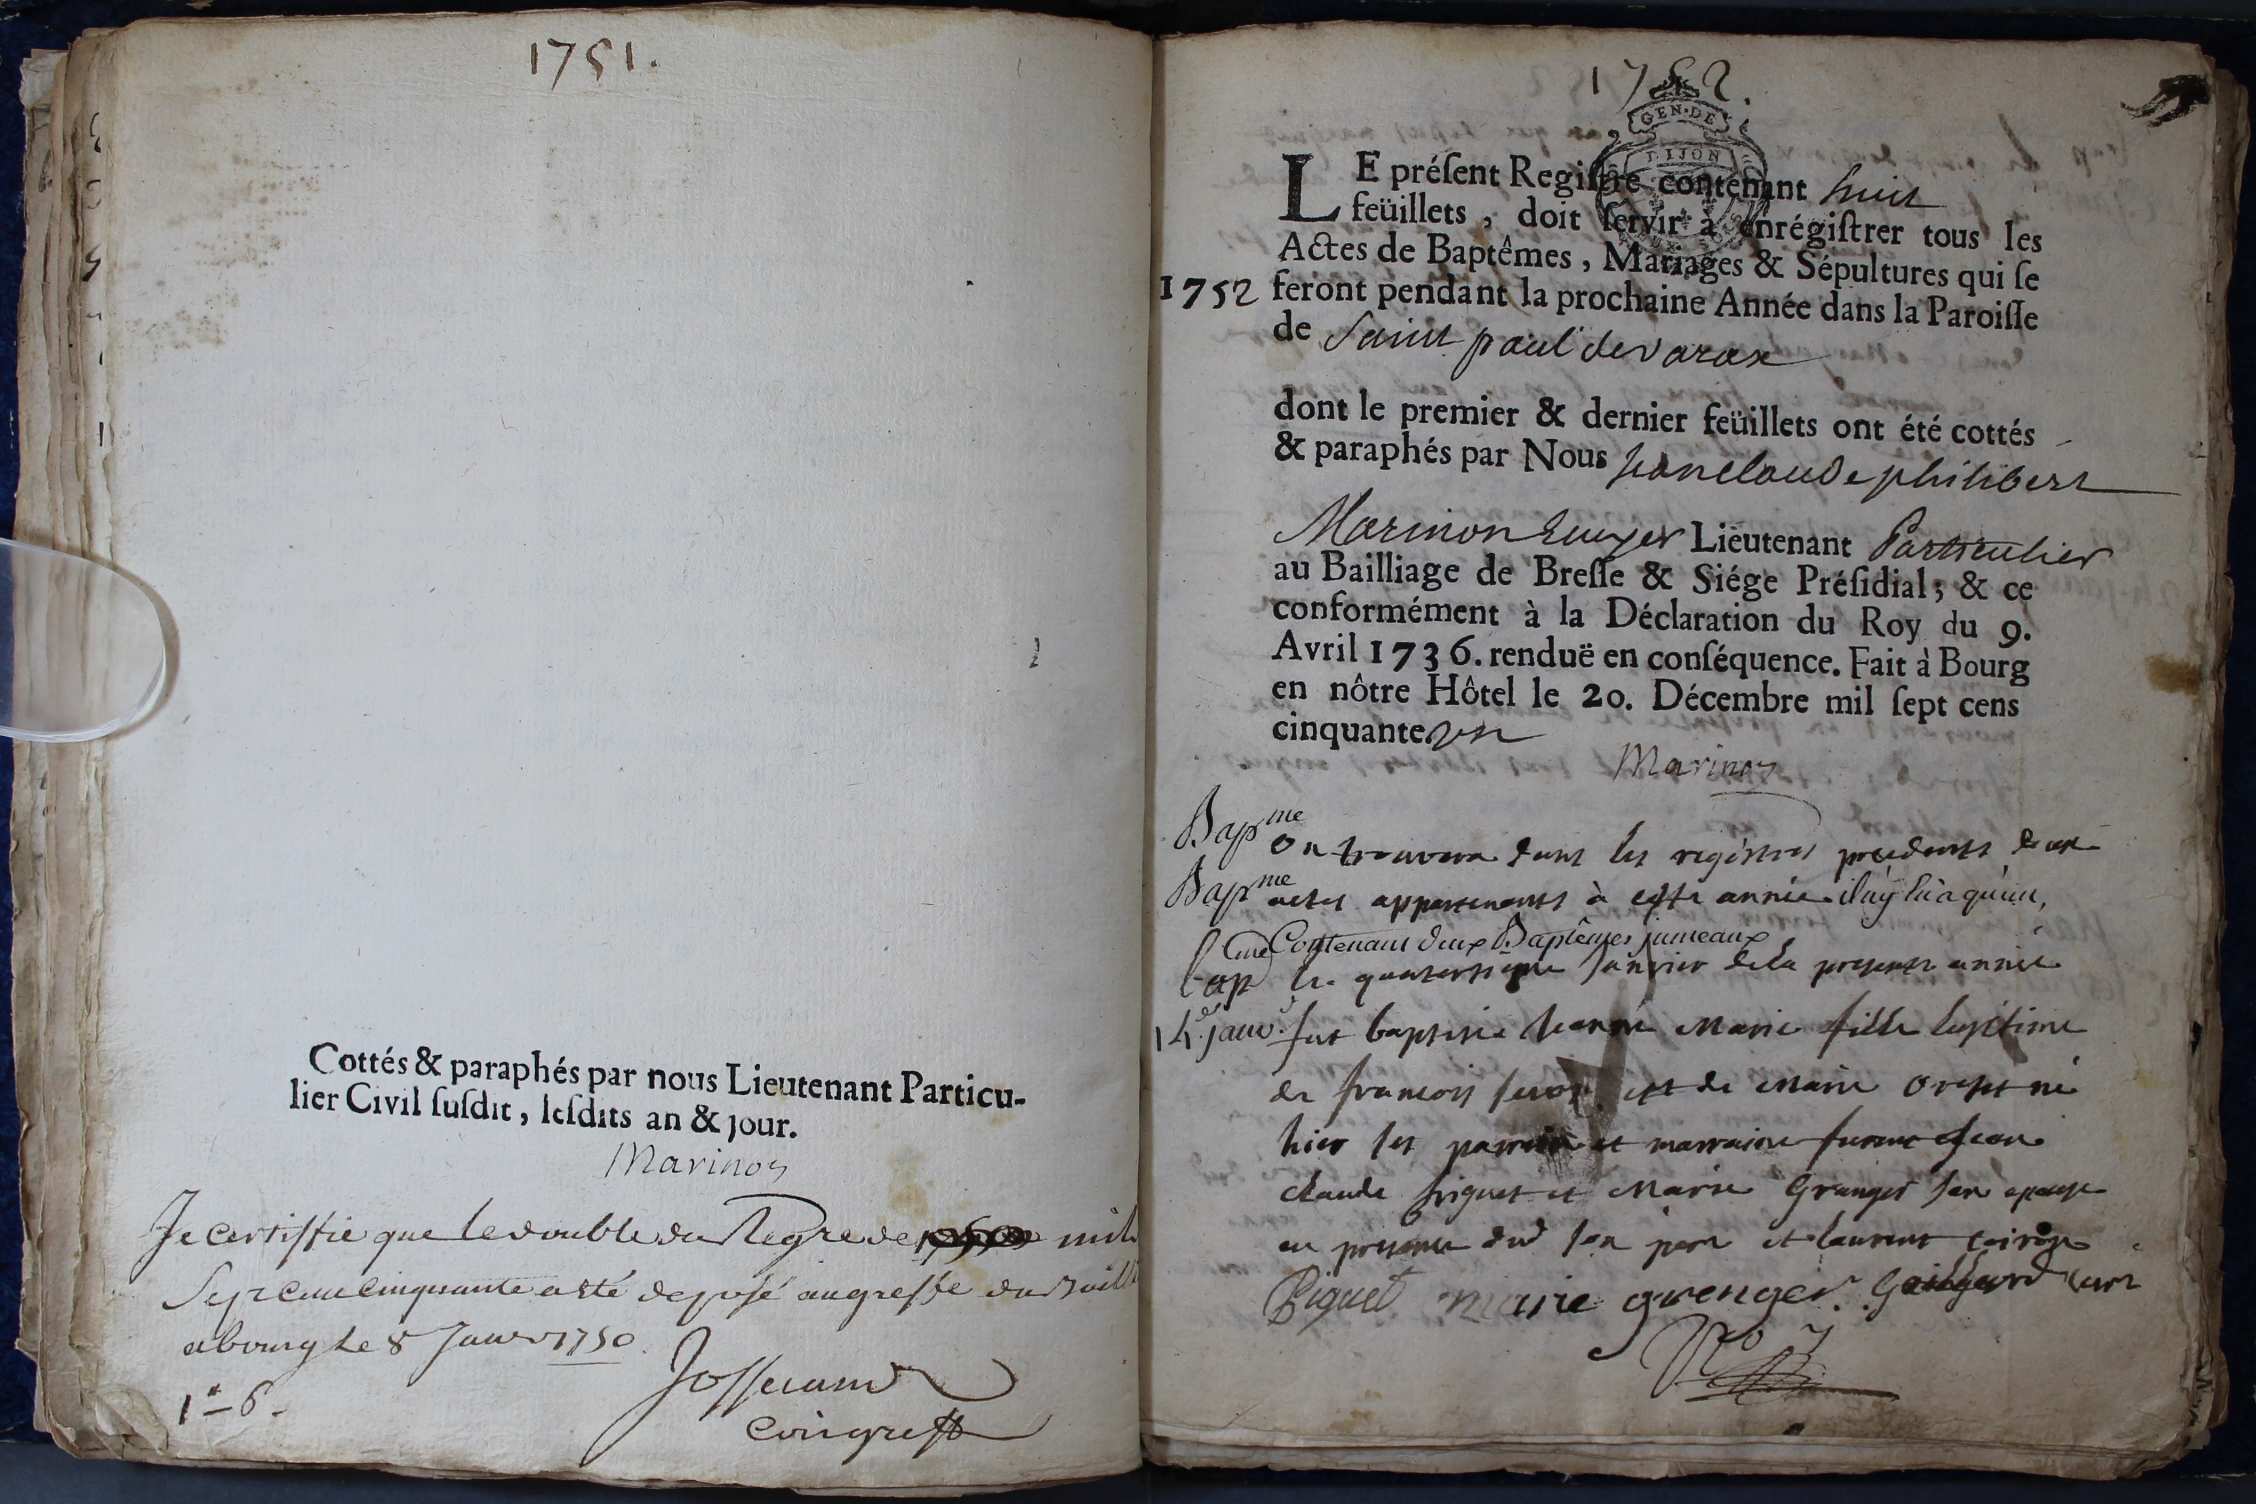 1751.
Cottés & paraphés par nous Lieutenant Particu-
lier Civil ſuſdit, leſdits an & jour.
Marinon
Je certiffie que le double du Regre de mil
Sept cent cinquante a été deposé au greffe du Baill
a bourg le 8 Janv 1750
Josserand
1 - 6.
1752.
GEN·DE
DIJON
LE préſent Regiſtre contenant huit
feüillets, doit ſervir à enrégiſtrer tous les
Actes de Baptêmes, Mariages & Sépultures qui ſe
1752 feront pendant la prochaine Année dans la Paroiſſe
de Saint paul de varax
dont le premier & dernier feüillets ont été cottés
& paraphés par Nous Jean Claude philibert
Marinon Ecuyer Lieutenant Particulier
au Bailliage de Breſſe & Siége Préſidial; & ce
conformément à la Déclaration du Roy du 9.
Avril 1736. renduë en conſéquence. Fait à Bourg
en nôtre Hôtel le 20. Décembre mil ſept cens
cinquante un
Marinon
Bapme on trouvera dans les registres precedents deux
Bapme actes appartenants à cette année. il n'y en a qu'un,
Contenant deux Baptêmes jumeaux
bap le quatorsieme Janvier de la presente année
14. janv. fut baptisée Jeanne Marie fille legitime
de francois et de Marie né
hier ses parrain et marraine furent Jean
claude piquet et Marie Granger son epouse
en presence dud son pere et laurent
Piquet marie grenger. Gaillard curé